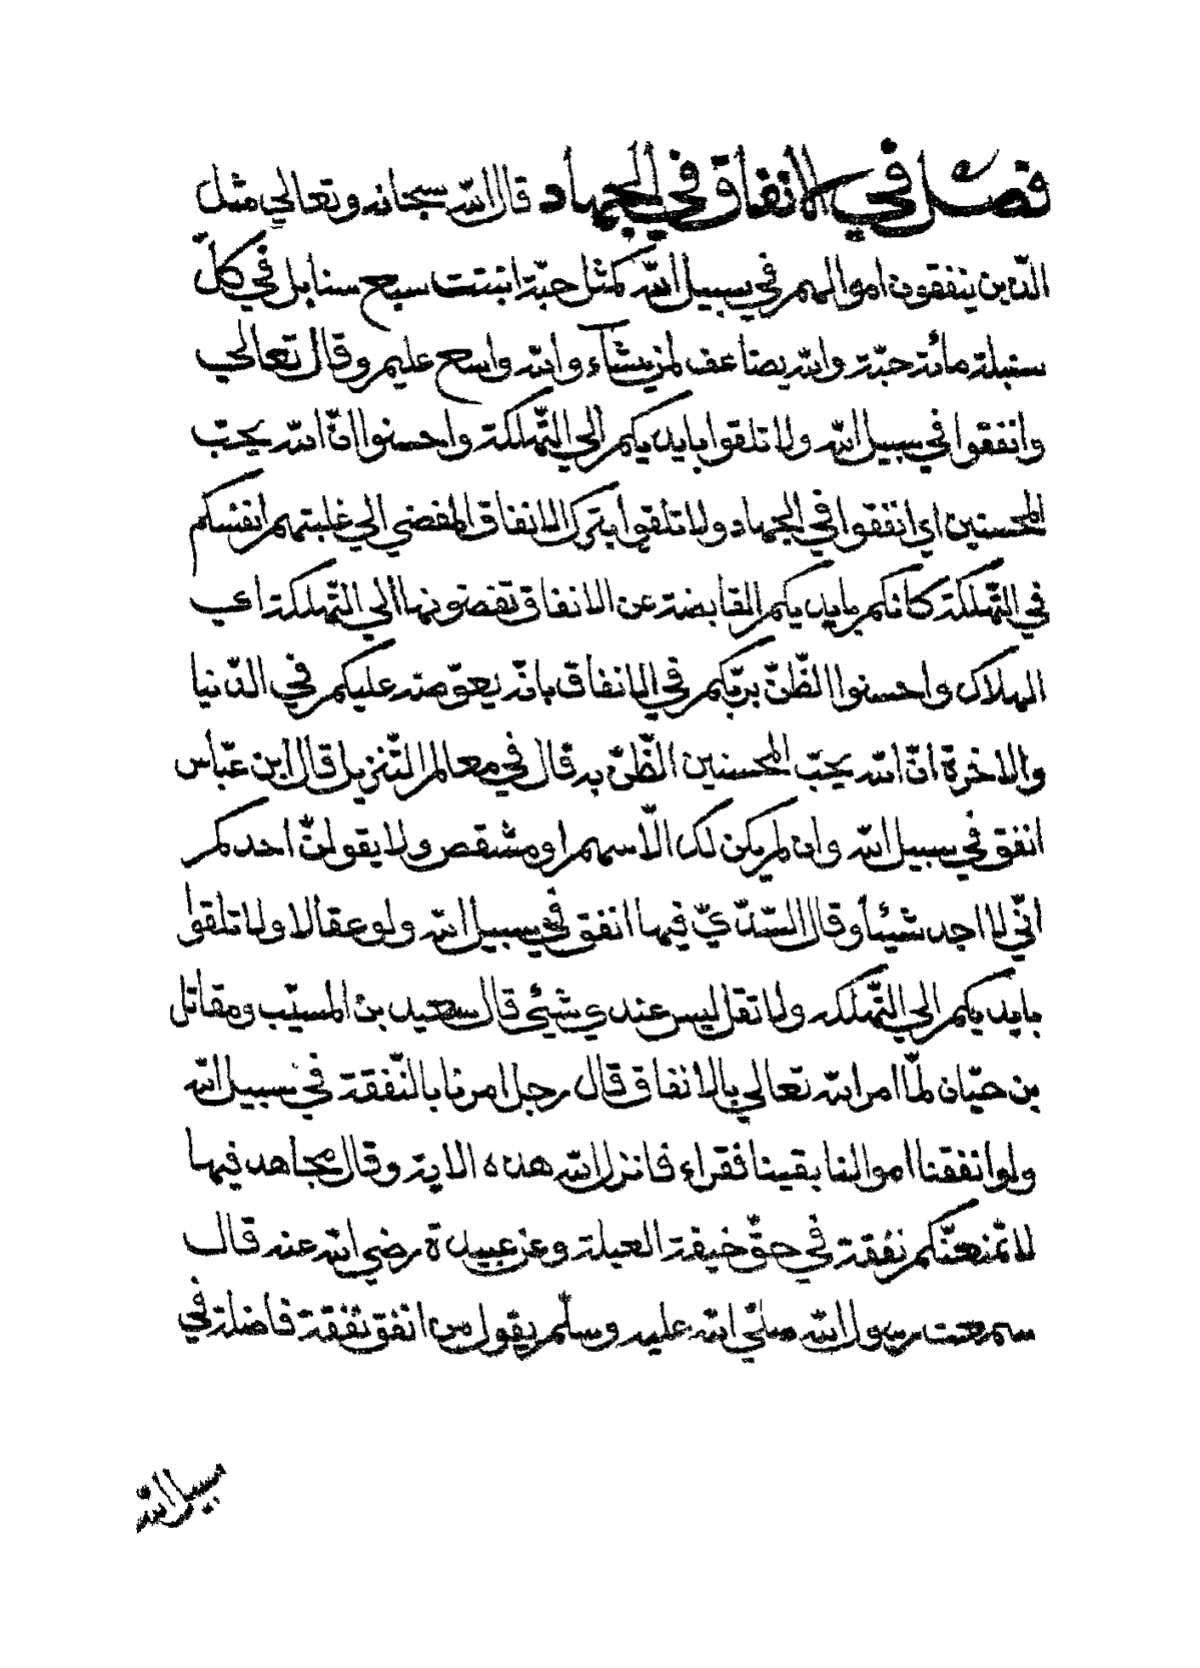 فصل في الانفاق في الجهاد قال الله سبحانه وتعالي مثل
الذين ينفقون اموالهم في سبيل الله كمثل حبّة انبتت سبع سنابل في كلّ
سنبلة مائة حبّة والله يضاعف لمن يشآء والله واسع عليم وقال تعالي
وانفقوا في سبيل الله ولا تلقوا بايديكم الي التّهلكة واحسنوا انّ الله يحبّ
المحسنين اي انفقوا في الجهاد ولا تلقوا بترك الانفاق المفضي الي غلبتهم انفسكم
في التّهلكة كانكم بايديكم القابضة عن الانفاق تفضونها الي التّهلكة اي
الهلاك واحسنوا الظّنّ بربّكم في الانفاق بانّه يعوّضه عليكم في الدّنيا
والاخرة انّ الله يحبّ المحسنين الظّنّ به قال في معالم التّنزيل قال ابن عبّاس
انفق في سبيل الله وان لم يكن لك الّا سهم او مشقص ولا يقولنّ احدكم
انّي لا اجد شيئا وقال السّدّيّ فيها انفق في سبيل الله ولو عقالا ولا تلقوا
بايديكم الي التّهلكه ولا تقل ليس عندي شيئ قال سعيد بن المسيّب ومقاتل
بن حيّان لمّا امر الله تعالي بالانفاق قال رجل امرنا بالنّفقة في سبيل الله
ولو انفقنا اموالنا بقينا فقراء فانزل الله هذه الاية وقال مجاهد فيها
لا تمنعنّكم نفقة في حقّ خيفة العيلة وعن عبيدة رضي الله عنه قال
سمعت رسول الله صلّي الله عليه وسلّم يقول من انفق نفقة فاضلة في
سبيل الله